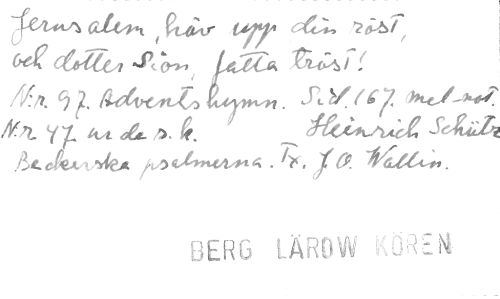 Jerusalem, häv upp din röst,
och dotter Sion, fatta tröst!
N:r 97. Adventshymn. Sid. 167. mel-not.
N:r 47 ur de s.k. Heinrich Schütz
Beckerska psalmerna. Tx. J.O. Wallin.
BERG LÄROW KÖREN